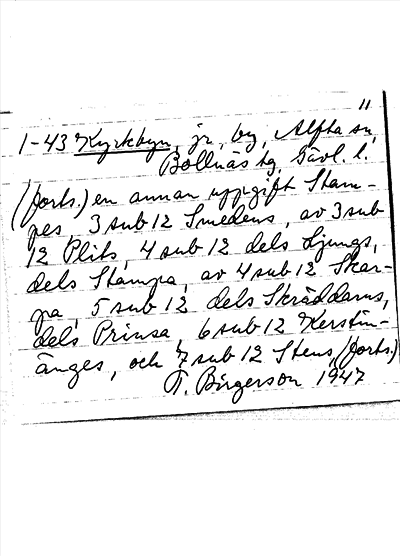 11
1-43 Kyrkbyn, jr, by, Alfta sn,
Bollnäs tg, Gävl. l.
(forts.) en annan uppgift Stam-
pes, 3 sub 12 Smedens, av 3 sub
12 Plits, 4 sub 12 dels Ljungs,
dels Stampa, av 4 sub 12 Skar-
pa, 5 sub 12 dels Skräddarns,
dels Prinsa, 6 sub 12 Kerstin-
änges, och 7 sub 12 Stens, (forts.)
T. Birgerson 1947